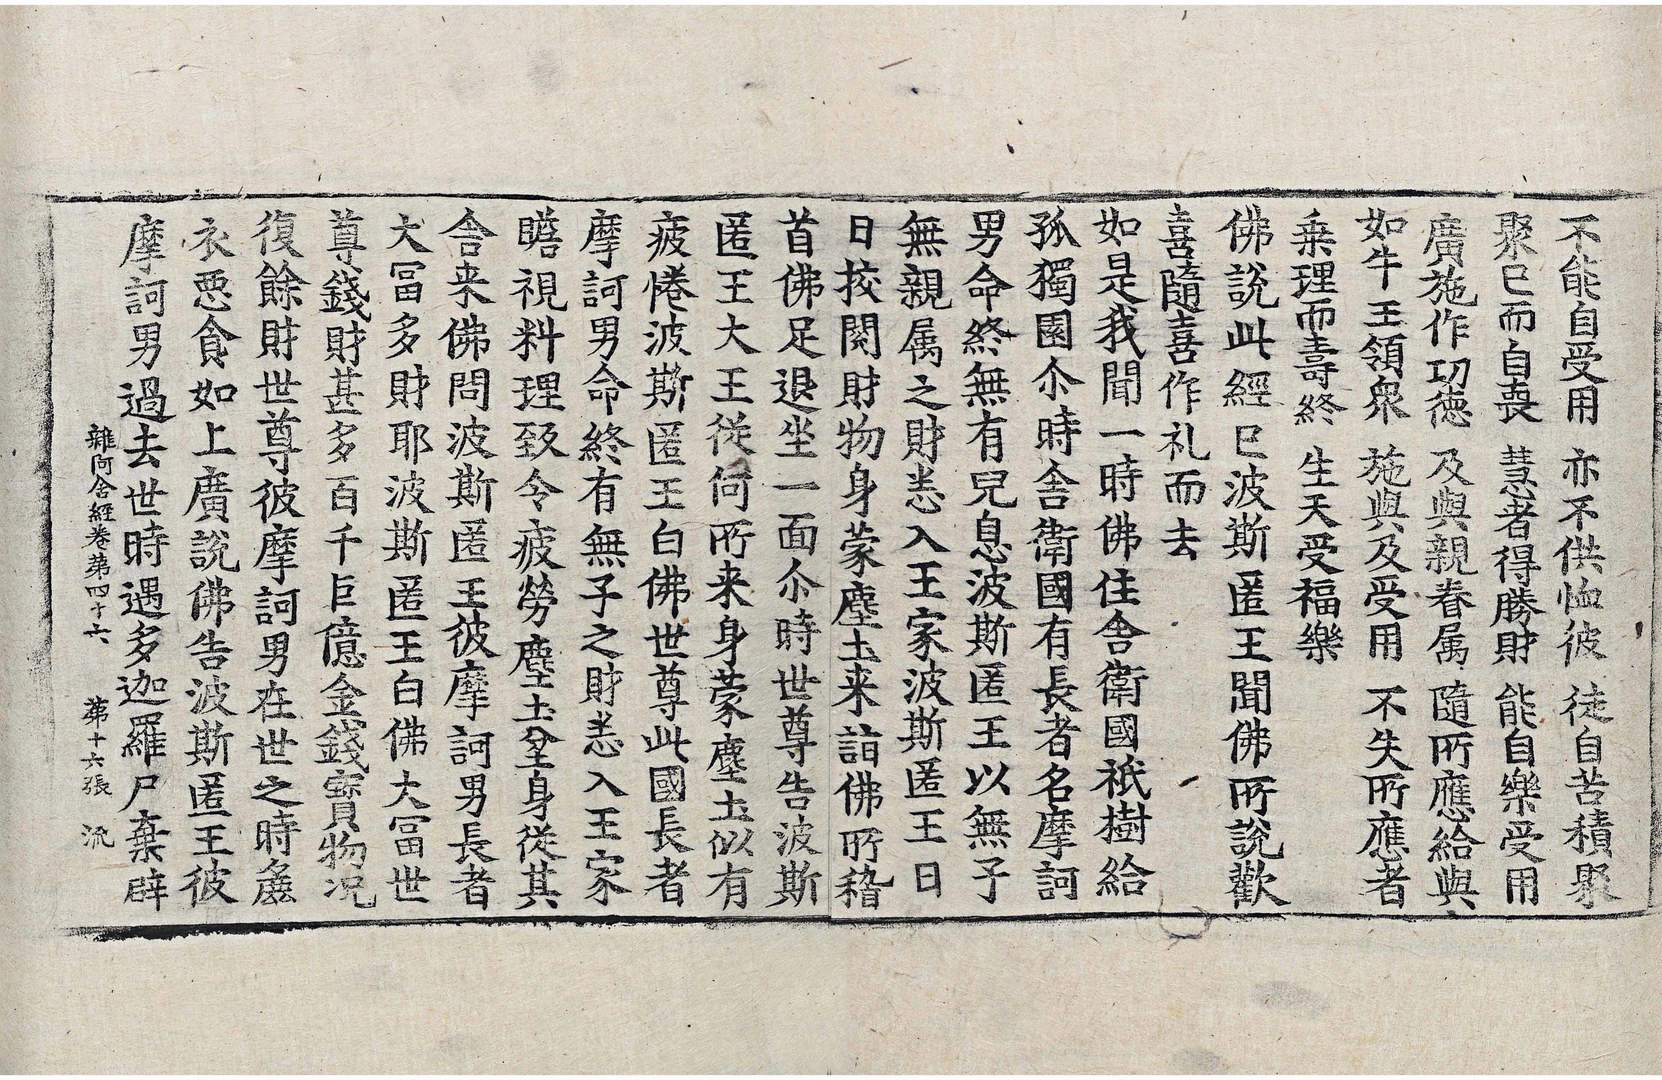 不能自受用　亦不供恤彼　徒自苦積聚
聚已而自喪　慧者得勝財　能自樂受用
廣施作功德　及與親眷属　隨所應給與
如牛王領衆　施與及受用　不失所應者
乗理而壽終　生天受福樂
佛說此經已波斯匿王聞佛所說歡
喜隨喜作礼而去
如是我聞一時佛住舍衛國祇樹給
孤獨園尒時舍衛國有長者名摩訶
男命終無有兒息波斯匿王以無子
無親属之財悉入王家波斯匿王日
日挍閱財物身蒙塵土来詣佛所稽
首佛足退坐一面尒時世尊告波斯
匿王大王從何所来身蒙塵土似有
疲惓波斯匿王白佛世尊此國長者
摩訶男命終有無子之財悉入王家
瞻視料理致令疲勞塵土坌身從其
舍来佛問波斯匿王彼摩訶男長者
大冨多財耶波斯匿王白佛大冨世
尊錢財甚多百千巨億金錢寶物况
復餘財世尊彼摩訶男在世之時麁
衣惡食如上廣說佛告波斯匿王彼
摩訶男過去世時遇多迦羅尸棄辟
雜阿含經卷第四十六　第十六張　流